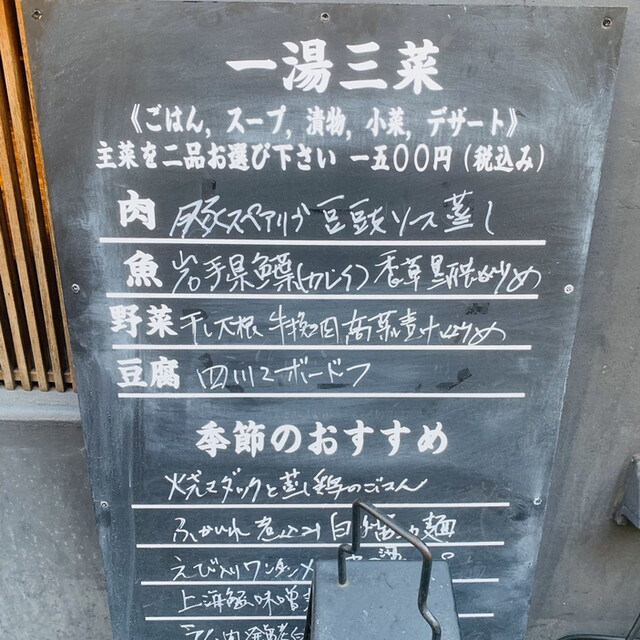 一湯三菜
《ごはん, スープ, 漬物, 小菜, デザート》
主菜を二品お選び下さい 一五〇〇円(税込み)
肉 豚スペアリブ 豆豉ソース蒸し
魚 岩手県鰈(カレイ) 香草黒酢炒め
野菜 干し大根 牛挽肉 高菜煮汁炒め
豆腐 四川マーボードフ
季節のおすすめ
焼きダックと蒸し鶏のごはん
ふかひれ煮込み 白湯 麺
えび入りワンタン
上海蟹味噌
ラム肉 発酵白